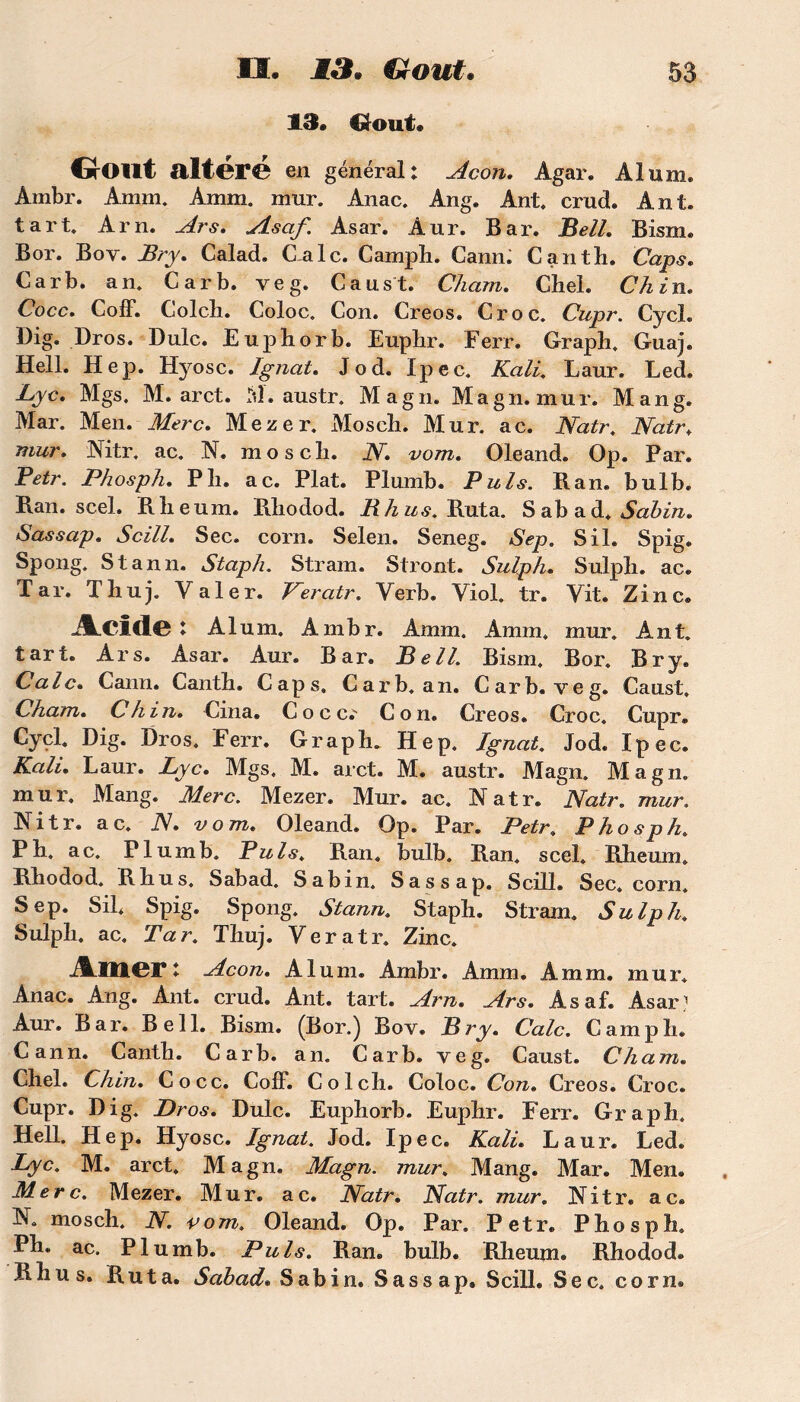 II. 13. Gout. 53
13. Gout.
Gout altéré en général: Acon. Agar. Alum.
Ambr. Amm. Amm. mur. Anac. Ang. Ant. crud. Ant.
tart. Arn. Ars. Asaf. Asar. Aur. Bar. Bell. Bism.
Bor. Bov. Bry. Calad. Calc. Camph. Cann. Canth. Caps.
Carb. an. Carb. veg. Caust. Cham. Chel. Chin.
Cocc. Coff. Colch. Coloc. Con. Creos. Croc. Cupr. Cycl.
Dig. Dros. Dulc. Euphorb. Euphr. Ferr. Graph. Guaj.
Hell. Hep. Hyosc. Ignat. Jod. Ipec. Kali. Laur. Led.
Lyc. Mgs. M. arct. M. austr. Magn. Magn. mur. Mang.
Mar. Men. Merc. Mezer. Mosch. Mur. ac. Natr. Natr.
mur. Nitr. ac. N. mosch. N. vom. Oleand. Op. Par.
Petr. Phosph. Ph. ac. Plat. Plumb. Puls. Ran. bulb.
Ran. scel. Rheum. Rhodod. Rhus. Ruta. Sabad. Sabin.
Sassap. Scill. Sec. corn. Selen. Seneg. Sep. Sil. Spig.
Spong. Stann. Staph. Stram. Stront. Sulph. Sulph. ac.
Tar. Thuj. Valer. Veratr. Verb. Viol. tr. Vit. Zinc.
Acide: Alum. Ambr. Amm. Amm. mur. Ant.
tart. Ars. Asar. Aur. Bar. Bell. Bism. Bor. Bry.
Calc. Cann. Canth. Caps. Carb. an. Carb. veg. Caust.
Cham. Chin. Cina. Cocc. Con. Creos. Croc. Cupr.
Cycl. Dig. Dros. Ferr. Graph. Hep. Ignat. Jod. Ipec.
Kali. Laur. Lyc. Mgs. M. arct. M. austr. Magn. Magn.
mur. Mang. Merc. Mezer. Mur. ac. Natr. Natr. mur.
Nitr. ac. N. vom. Oleand. Op. Par. Petr. Phosph.
Ph. ac. Plumb. Puls. Ran. bulb. Ran. scel. Rheum.
Rhodod. Rhus. Sabad. Sabin. Sassap. Scill. Sec. corn.
Sep. Sil. Spig. Spong. Stann. Staph. Stram. Sulph.
Sulph. ac. Tar. Thuj. Veratr. Zinc.
Amer: Acon. Alum. Ambr. Amm. Amm. mur.
Anac. Ang. Ant. crud. Ant. tart. Arn. Ars. Asaf. Asar.
Aur. Bar. Bell. Bism. (Bor.) Bov. Bry. Calc. Camph.
Cann. Canth. Carb. an. Carb. veg. Caust. Cham.
Chel. Chin. Cocc. Coff. Colch. Coloc. Con. Creos. Croc.
Cupr. Dig. Dros. Dulc. Euphorb. Euphr. Ferr. Graph.
Hell. Hep. Hyosc. Ignat. Jod. Ipec. Kali. Laur. Led.
Lyc. M. arct. Magn. Magn. mur. Mang. Mar. Men.
Merc. Mezer. Mur. ac. Natr. Natr. mur. Nitr. ac.
N. mosch. N. vom. Oleand. Op. Par. Petr. Phosph.
Ph. ac. Plumb. Puls. Ran. bulb. Rheum. Rhodod.
Rhus. Ruta. Sabad. Sabin. Sassap. Scill. Sec. corn.